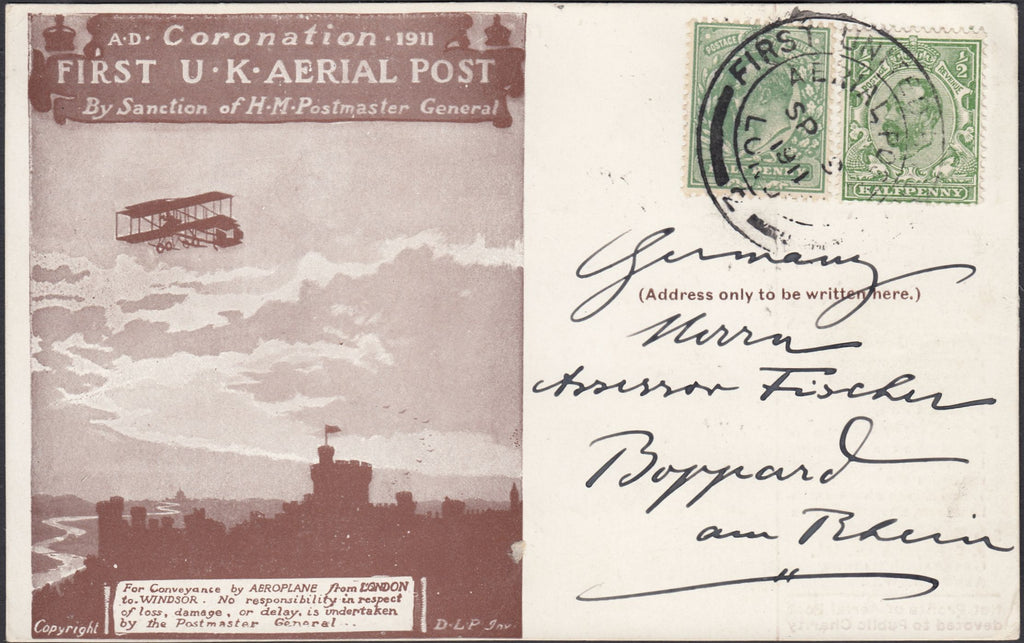 A·D· Coronation · 1911
FIRST U·K·AERIAL POST
By Sanction of H·M·Postmaster General
For Conveyance by AEROPLANE from LONDON
to WINDSOR. No responsibility in respect
of loss, damage, or delay, is undertaken
by the Postmaster General...
Copyright
D·L·P Inv.
POSTAGE
HALFPENNY
FIRST UNITED
AERIAL POST
SP
1911
1/2
Germany
(Address only to be written here.)
Herrn
Assessor Fischer
Boppard
am Rhein
devoted to Public Charity